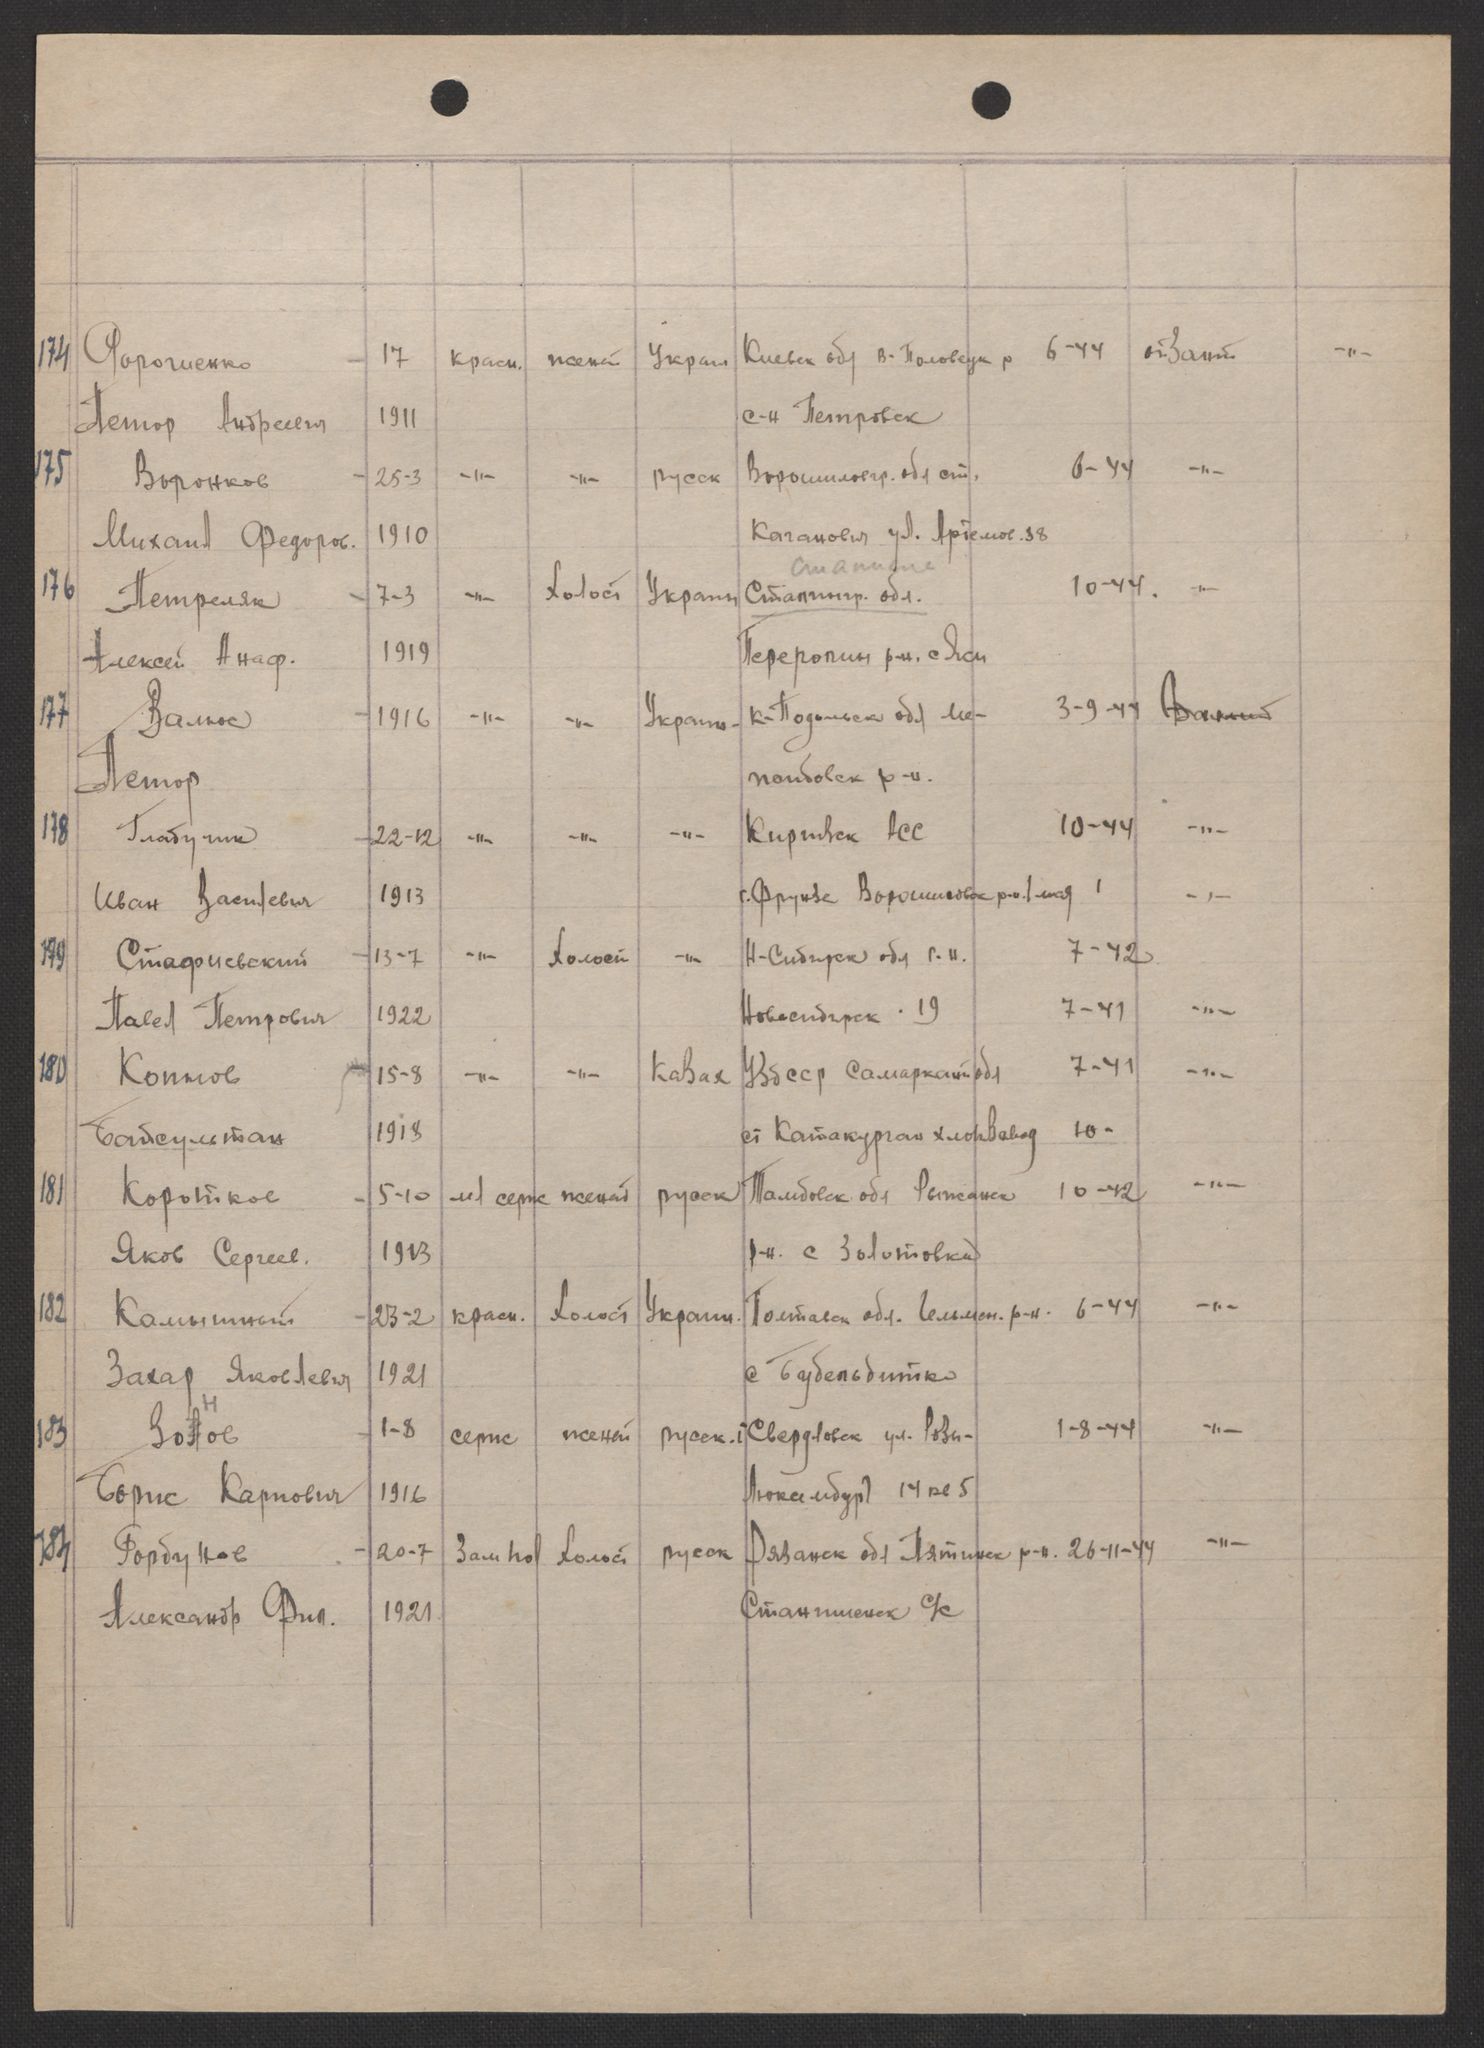 174 Дорошенко - 17 красн. женат Украин Киевск обл В-Половецк р 6-44 -"-
Петор Андреевич 1911 с-н Петровск
175 Воронков - 25-3 -"- -"- русск Ворошиловгр. обл ст. 6-44 -"-
Михаил Федоров. 1910 Каганович ул. Артемов. 38
176 Петреляк - 7-3 -"- холост Украин Сталингр. обл. 10-44. -"-
Алексей Анаф. 1919 р-н. с
177 Валюс - 1916 -"- -"- Украин- К-Подольск обл Ме- 3-9-44
Петор р-н.
178 Глабучик - 22-12 -"- -"- -"- Киргизск ССС 10-44 -"-
Иван Василевич 1913 г. Фрунзе Ворошиловск р-н. 1 мая 1 -"-
179 Стафиевский - 13-7 -"- холост -"- Н-Сибирск обл г. н. 7-42
Павел Петрович 1922 Новосибирск . 19 7-41 -"-
180 Копжов 15-8 -"- -"- Казах УзбССР Самарканд обл 7-41 -"-
Байсултан 1918 ст Катакурган хлопзавод 10-
181 Коротков - 5-10 мл серж женат русск Тамбовск обл Рыжанск 10-42 -"-
Яков Сергеев. 1913 р-н. с Золотовка
182 Камышный - 23-2 красн. холост Украин. Полтавск обл. р-н. 6-44 -"-
Захар Яковлевич 1921 с
Н
183 Зонов - 1-8 серж женат русск. г Свердловск ул. Розы- 1-8-44 -"-
Борис Карпович 1916 Люксембург 14 кв 5
184 Горбунов - 20-7 холост русск Рязанск обл р-н. 26-11-44 -"-
Александр Фил. 1921. с/с